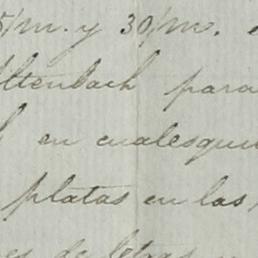 5/m. y 30/m.
ltenbach para
en cualesqui
platas en las
es de letras